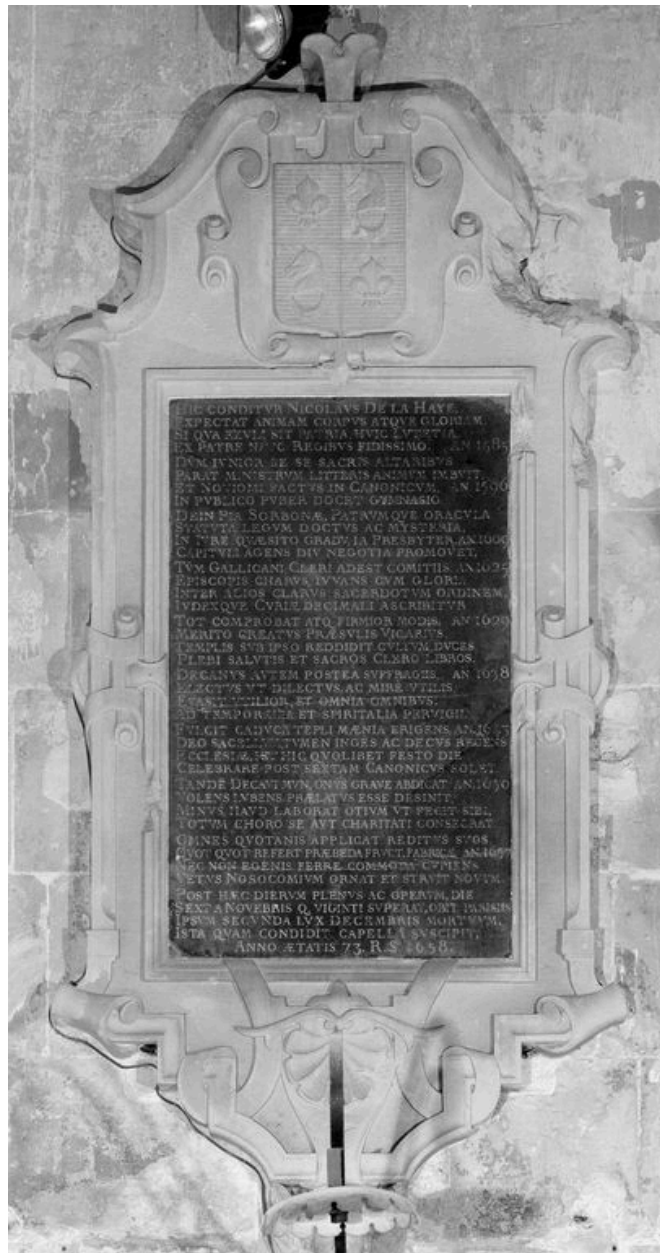 HIC CONDITVR NICOLAVS DE LA HAYE,
EXPECTAT ANIMAM CORPVS ATQVE GLORIAM.
SI QVA EXVLI SIT PATRIA, HVIC LVTETIA
EX PATRE REGIBVS FIDISSIMO. AN 1585
DVM IVNIOR SE SE SACRIS ALTARIBVS
PARAT MINISTRVM LITTERIS ANIMVM IMBVIT
ET NOBILI FACTVS IN CANONICVM, AN 1596
IN PVBLICO PVBER DOCET GYMNASIO
DEIN PIA SORBONÆ, PATRVMQVE ORACVLA
STATVTA LEGVM DOCTVS AC MYSTERIA,
IN IVRE QVÆSITO GRADV, IA PRESBYTER, AN 1609
CAPITVLI AGENS DIV NEGOTIA PROMOVET,
TVM GALLICANI CLERI ADEST COMITIIS AN 1625
EPISCOPIS CHARVS, IVVANS CVM GLORIA
INTER ALIOS CLARVS SACERDOTVM ORDINEM,
IVDEXQVE CVRIÆ DECIMALI ASCRIBITVR
TOT COMPROBAT ATQ FIRMIOR MODIS, AN 1629
MERITO CREATVS PRÆSVLIS VICARIVS
TEMPLIS SVB IPSO REDDIDIT CVLTVM DVCES
PLEBI SALVTIS ET SACROS CLERO LIBROS.
DECANVS AVTEM POSTEA SVFFRAGIIS, AN 1638
ELECTVS VT DILECTVS AC MIRE VTILIS
EVASIT VTILIOR, ET OMNIA OMNIBVS.
AD TEMPORALIA ET SPIRITALIA PERVIGIL
FVLCIT CADVCA TEPLI MÆNIA ERIGENS AN
DEO INGES AC DECVS
ECCLESIÆ, HIC QVOLIBET FESTO DIE
CELEBRARE POST SEXTAM CANONICVS SOLET
TANDE DECANVM MVN, ONVS GRAVE ABDICAT AN 1650
VOLENS LVBENS PRÆLATVS ESSE DESINIT,
MINVS HAVD LABORAT OTIVM VT FECIT SIBI,
TOTVM CHORO SE AVT CHARITATI CONSECRAT
OMNES QVOTANIS APPLICAT REDITVS SVOS
QVOT QVOT REFERT PRÆBEDA FRVCT, FABRICÆ AN 1657
NEC NON EGENIS FERRE COMMODA CVPIENS
VETVS NOSOCOMIVM ORNAT ET STRVIT NOVVM.
POST HÆC DIERVM PLENVS AC OPERVM, DIE
SEXTA NOVEBRIS Q VIGINTI SVPERAT, OBIIT PARISIIS
IPSVM SECVNDA LVX DECEMBRIS MORTVVM,
ISTA QVAM CONDIDIT CAPELLA SVSCIPIT,
ANNO ÆTATIS 73. R.S 1658.